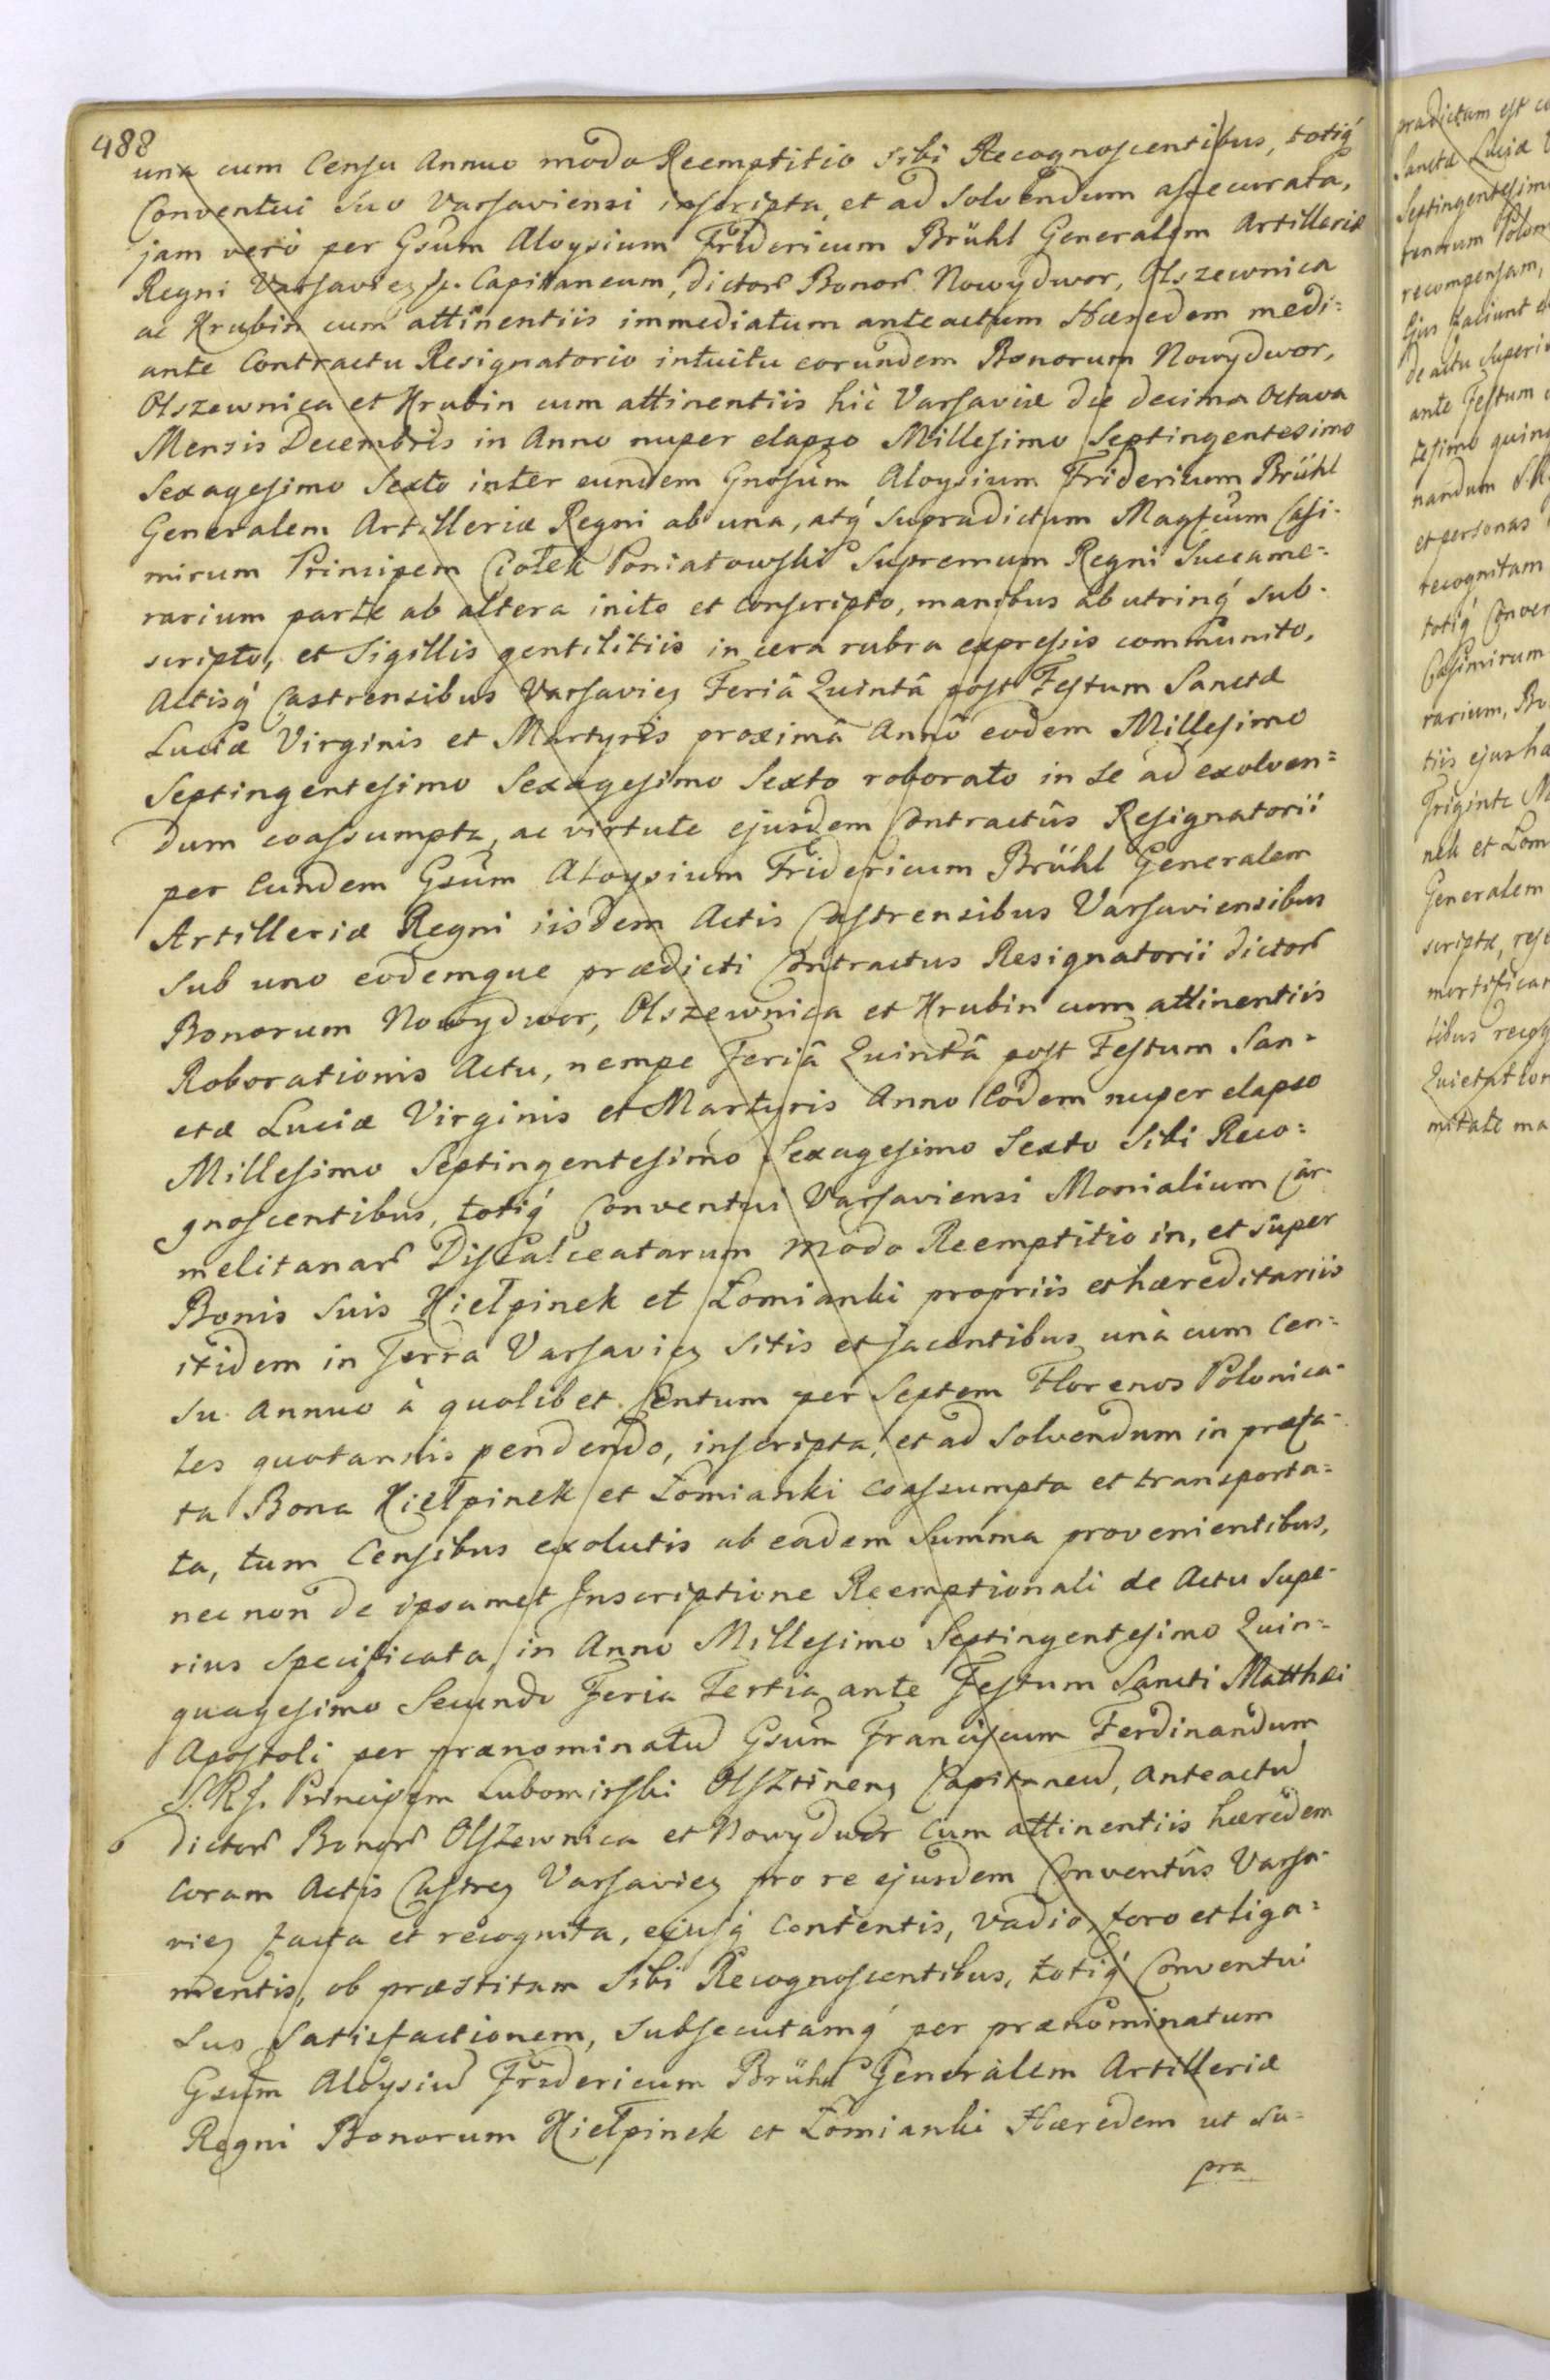 488
una cum Censu Annuo modo Reemptitio sibi Recognoscentibus, totiq́
Conventui Suo Varsaviensi inscripta, et ad solvendum assecurata,
jam verò per Gsum Aloysium Fridericum Brühl Generalem Artilleriæ
Regni Varsavieñ &c. Capitaneum, dictor Bonor Nowydwor, Olszewnica
ac Krubin cum attinentiis immediatum anteactum Hæredem medi=
ante Contractu Resignatorio intuitu eorundem Bonorum Nowydwor,
Olszewnica et Krubin cum attinentiis hic Varsaviæ die decima Octava
Mensis Decembris in Anno nuper elapso Millesimo Septingentesimo
Sexagesimo Sexto inter eundem Gnosum Aloysium Fridericum Brühl
Generalem Artilleriæ Regni ab una, atq́ supradictum Magfcum Casi-
mirum Principem Ciołek Poniatowski Supremum Regni Succame=
rarium parte ab altera inito et conscripto, manibus ab utrinq́ sub-
scripto, et Sigillis gentilitiis in cera rubra expressis communito,
Actisq́ Castrensibus Varsavieñ Feriâ Quintâ post Festum Sanctæ
Luciæ Virginis et Martyris proximâ Annô eodem Millesimo
Septingentesimo Sexagesimo Sexto roborato in se ad exolven=
dum coassumpta, ac virtute ejusdem Contractûs Resignatorii
per Eundem Gsum Aloysium Fridericum Brühl Generalem
Artilleriæ Regni iisdem Actis Castrensibus Varsaviensibus
sub uno eodemque prædicti Contractus Resignatorii dictor
Bonorum Nowydwor, Olszewnica et Krubin cum attinentiis
Roborationis Actu, nempe Feriâ Quintâ post Festum San-
ctæ Luciæ Virginis et Martyris Anno Eodem nuper elapso
Millesimo Septingentesimo Sexagesimo Sexto Sibi Reco=
gnoscentibus, totiq́ Conventui Varsaviensi Monialium Car-
melitanar Discalceatarum modo Reemptitio in, et super
Bonis suis Kiełpinek et Łomianki propriis et hæreditariis
itidem in Terra Varsavieñ sitis et jacentibus unà cum Cen=
su Annuo à quolibet Centum per Septem Florenos Polonica-
les quotannis pendendo, inscripta, et ad solvendum in præfa-
ta Bona Kiełpinek et Łomianki coassumpta et transporta=
ta, tum Censibus exolutis ab eadem Summa provenientibus,
nec non de ipsamet Inscriptione Reemptionali de Actu Supe-
rius specificata, in Anno Millesimo Septingentesimo Quin=
quagesimo Secundo Feria Tertia ante Festum Sancti Matthæi
Apostoli per prænominatū Gsum Franciscum Ferdinandum
S. R. J. Principem Lubomirski Olsztineñ Capitaneū, anteactū
dictor Bonor Olszewnica et Nowydwor cum attinentiis hæredem
coram Actis Castreñ Varsavieñ pro re ejusdem Conventûs Varsa-
vieñ facta et recognita, ejusq́ contentis, vadio, foro et liga=
mentis, ob præstitam Sibi Recognoscentibus, totiq́ Conventui
Suo satisfactionem, subsecutamq́ per prænominatum
Gsum Aloysiū Fridericum Brühl Generalem Artilleriæ
Regni Bonorum Kiełpinek et Łomianki Hæredem ut su=
pra
prædictum est
Sanctæ Luciæ
Septingentesim
renorum Polon
recompensam,
Ejus faciunt
de actu superi
ante Festum
tesimo quin
nandum S. R.
et personas
recognitam
totiq́ Conven
Casimirum
rarium, Bo
tiis ejus hæ
Triginta M
nek et Łom
Generalem
scripta,
mortifican
tibus recog
Quietation
mitate ma